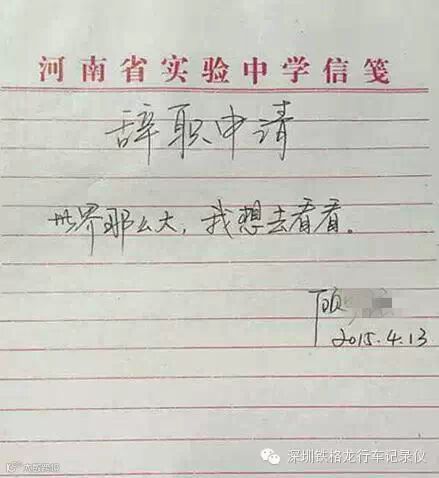 河南省实验中学信笺
辞职申请
世界那么大，我想去看看。
顾
2015.4.13
深圳铁格龙行车记录仪